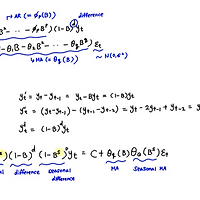 → AR (= φp(B)) difference
B² - ··· - φpB^p) (1-B)^d yt
- θ1B - θ2B² - ··· - θqB^q) εt
↳ MA (= θq(B)) ~ N(0,σ²)
y't = yt - yt-1 = yt - Byt = (1-B)yt
y''t = (yt - yt-1) - (yt-1 - yt-2) = yt - 2yt-1 + yt-2 =
y^d t = (1-B)^d yt
)(1-B)^d (1-B^s)^D yt = C + θq(B) ΘQ(B^s) εt
difference seasonal difference MA seasonal MA